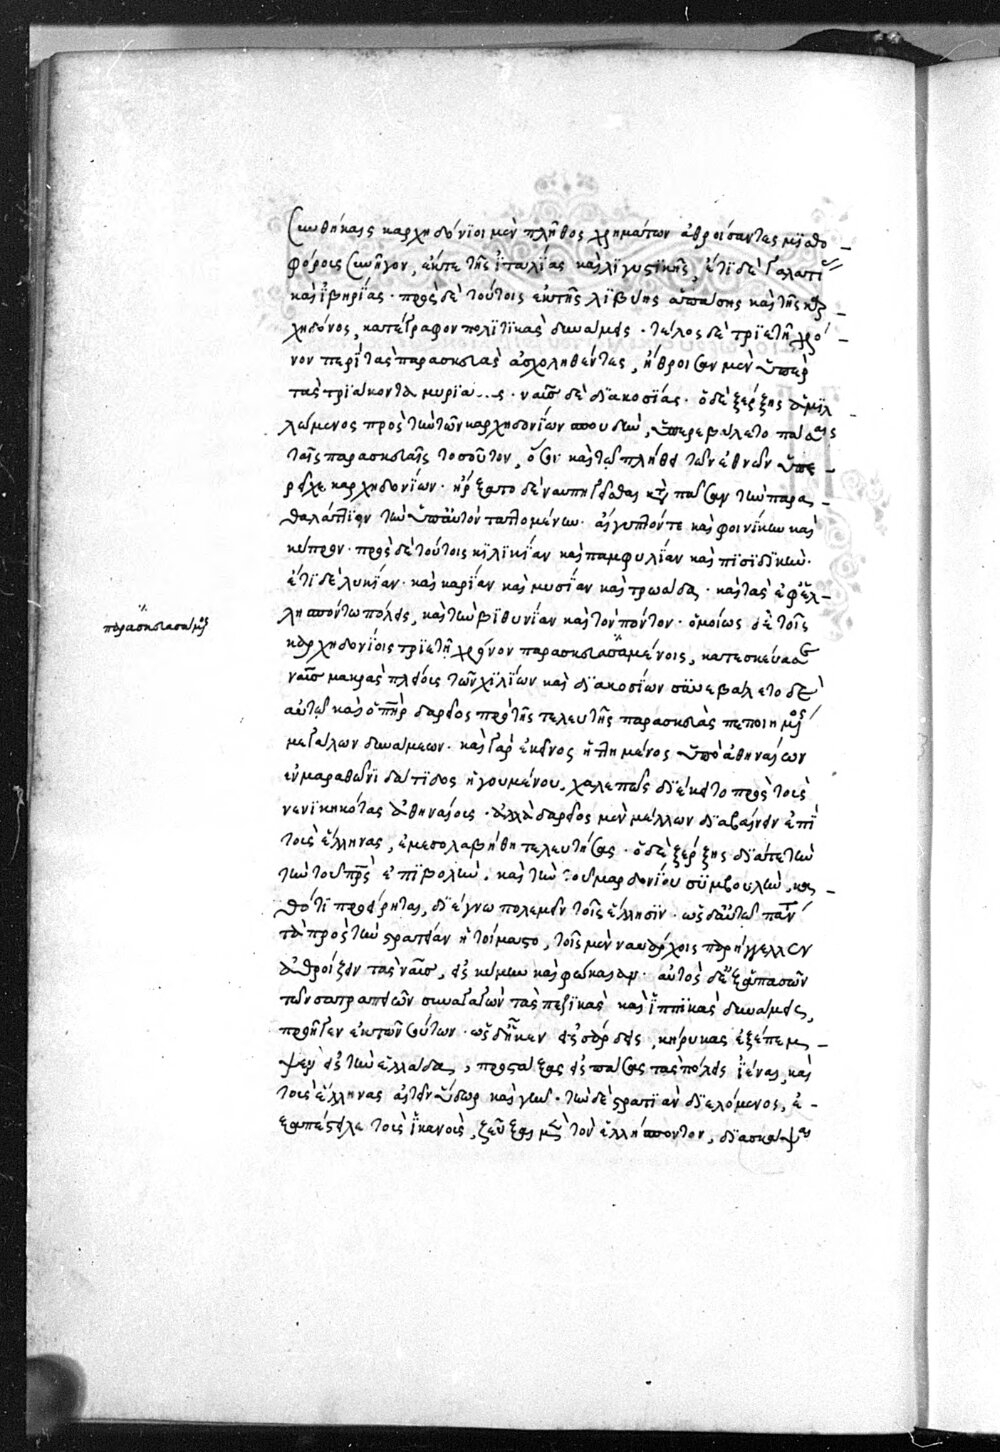 συνθήκαις καρχηδόνιοι μὲν πλῆθος χρημάτων ἀθροίσαντες μισθο-
φόρους συνῆγον, ἐκ τε τῆς ἰταλίας καὶ λιγυστικῆς, ἔτι δὲ γαλατί
καὶ ἰβηρίας· πρὸς δὲ τούτοις ἐκ τῆς λιβύης ἁπάσης καὶ τῆς καρ-
χηδόνος, κατέγραφον πολιτικὰς δυνάμεις· τέλος δὲ τριετῆ χρό-
νον περὶ τὰς παρασκευὰς ἀσχοληθέντες, ἤθροισαν μὲν ὑπὲρ
τὰς τριάκοντα μυριά...ς· ναῦς δὲ διακοσίας· ὁ δὲ ξέρξης ἁμιλ-
λώμενος πρὸς τὴν τῶν καρχηδονίων σπουδὴν, ὑπερεβάλετο πάσαις
ταῖς παρασκευαῖς τοσοῦτον, ὅσον καὶ τῷ πλήθει τῶν ἐθνῶν ὑπε-
ρεῖχε καρχηδονίων· ἤρξατο δὲ ναυπηγεῖσθαι κατὰ πᾶσαν τὴν παρα-
θαλάττιον τὴν ὑπ' αὐτὸν ταττομένην· αἴγυπτόν τε καὶ φοινίκην καὶ
κύπρον· πρὸς δὲ τούτοις κιλικίαν καὶ παμφυλίαν καὶ πισιδικήν·
ἔτι δὲ λυκίαν· καὶ καρίαν καὶ μυσίαν καὶ τρωάδα· καὶ τὰς ἐφ' ἑλ-
λησπόντῳ πόλεις, καὶ τὴν βιθυνίαν καὶ τὸν πόντον· ὁμοίως δὲ τοῖς
παρασκευασάμενος
καρχηδονίοις τριετῆ χρόνον παρασκευασαμένοις, κατεσκεύασε
ναῦς μακρὰς πλείους τῶν χιλίων καὶ διακοσίων συνεβάλετο δὲ
αὐτῷ καὶ ὁ πατὴρ δαρεῖος πρὸ τῆς τελευτῆς παρασκευὰς πεποιημένος
μεγάλων δυνάμεων· καὶ γὰρ ἐκεῖνος ἡττημένος ὑπὸ ἀθηναίων
ἐν μαραθῶνι δάτιδος ἡγουμένου. χαλεπῶς διέκειτο πρὸς τοὺς
νενικηκότας ἀθηναίους· ἀλλὰ δαρεῖος μὲν μέλλων διαβαίνειν ἐπὶ
τοὺς ἕλληνας, ἐμεσολαβήθη τελευτήσας· ὁ δὲ ξέρξης διά τε τὴν
τὴν τοῦ πατρὸς ἐπιβολὴν. καὶ τὴν τοῦ μαρδονίου συμβουλὴν, κα-
θότι προείρηται, διέγνω πολεμεῖν τοῖς ἕλλησιν· ὡς δ' αὐτῷ πάντα
τὰ πρὸς τὴν στρατείαν ἡτοίμαστο, τοῖς μὲν ναυάρχοις παρήγγειλεν
ἀθροίζειν τὰς ναῦς, εἰς κύμην καὶ φώκαιαν· αὐτὸς δὲ ἐξ ἁπασῶν
τῶν σατραπειῶν συναγαγὼν τὰς πεζικὰς καὶ ἱππικὰς δυνάμεις,
προῆγεν ἐκ τῶν σούσων· ὡς δ' ἧκεν εἰς σάρδεις, κήρυκας ἐξέπεμ-
ψεν εἰς τὴν ἑλλάδα, προστάξας εἰς πάσας τὰς πόλεις ἰέναι, καὶ
τοὺς ἕλληνας αἰτεῖν ὕδωρ καὶ γῆν· τὴν δὲ στρατιὰν διελόμενος, ἐ-
ξαπέστειλε τοὺς ἱκανοὺς, ζεῦξαι μὲν τὸν ἑλλήσποντον, διασκάψαι